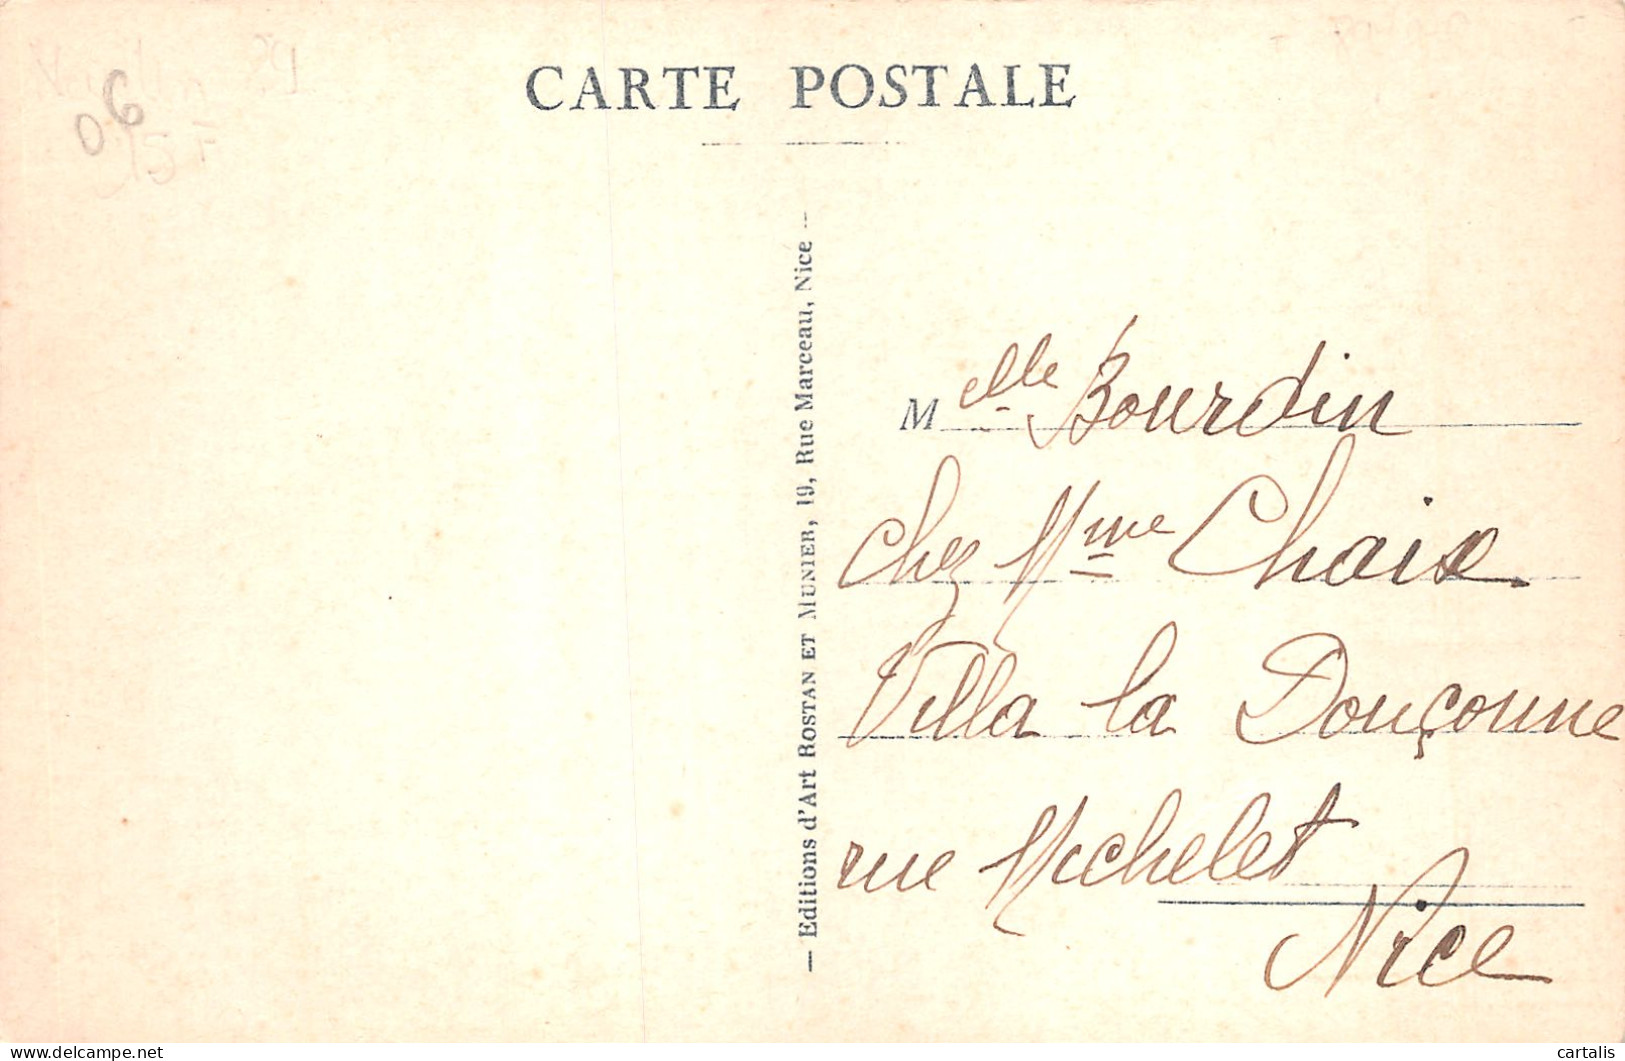 CARTE POSTALE
06
15 F
— Editions d'Art ROSTAN ET MUNIER, 19, Rue Marceau, Nice —
Melle Bourdin
chez Mme Chaix
Villa la Douçonne
rue Michelet
Nice
www.delcampe.net
cartalis